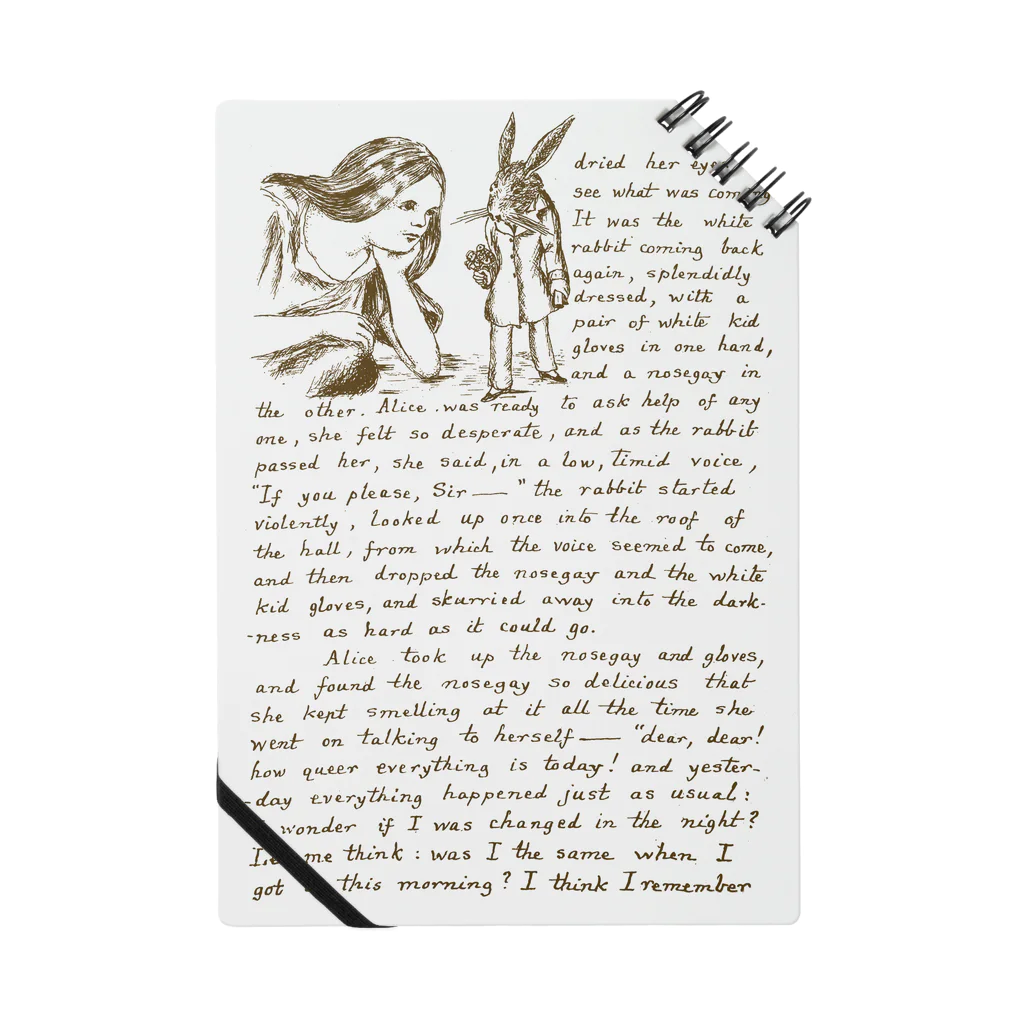 dried her
see what was coming
It was the white
rabbit coming back
again, splendidly
dressed, with a
pair of white kid
gloves in one hand,
and a nosegay in
the other. Alice was ready to ask help of any
one, she felt so desperate, and as the rabbit
passed her, she said, in a low, timid voice,
"If you please, Sir——" the rabbit started
violently, looked up once into the roof of
the hall, from which the voice seemed to come,
and then dropped the nosegay and the white
kid gloves, and skurried away into the dark-
-ness as hard as it could go.
Alice took up the nosegay and gloves,
and found the nosegay so delicious that
she kept smelling at it all the time she
went on talking to herself—— "dear, dear!
how queer everything is today! and yester-
-day everything happened just as usual:
wonder if I was changed in the night?
me think: was I the same when I
got this morning? I think I remember